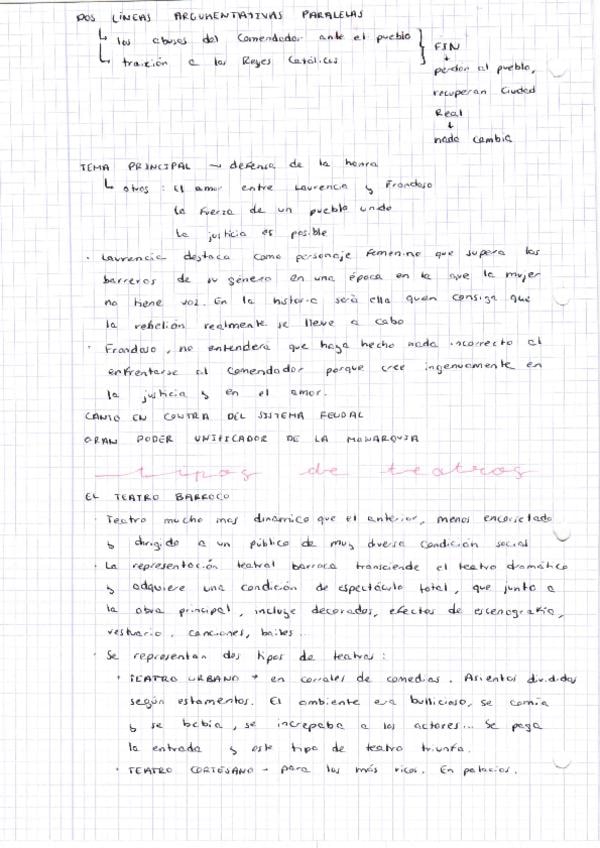 DOS LÍNEAS ARGUMENTATIVAS PARALELAS
↳ los abusos del Comendador ante el pueblo
↳ traición a los Reyes Católicos
FIN
↓
perdon al pueblo,
recuperan Ciudad
Real
↓
nada cambia
TEMA PRINCIPAL → defensa de la honra
↳ otros: El amor entre Laurencia y Frondoso
la fuerza de un pueblo unido
la justicia es posible
· Laurencia destaca como personaje femenino que supera las
barreras de su género en una época en la que la mujer
no tiene voz. En la historia será ella quien consiga que
la rebelión realmente se lleve a cabo
· Frondoso, no entenderá que haya hecho nada incorrecto al
enfrentarse al Comendador porque cree ingenuamente en
la justicia y en el amor.
CANTO EN CONTRA DEL SISTEMA FEUDAL
GRAN PODER UNIFICADOR DE LA MONARQUÍA
tipos de teatros
EL TEATRO BARROCO
· Teatro mucho mas dinámico que el anterior, menos encorsetado
y dirigido a un público de muy diversa condición social
· La representación teatral barroca transciende el teatro dramático
y adquiere una condición de espectáculo total, que junto a
la obra principal, incluye decorados, efectos de escenografía,
vestuario, canciones, bailes...
· Se representan dos tipos de teatros:
· TEATRO URBANO → en corrales de comedias. Asientos divididos
según estamentos. El ambiente era bullicioso, se comía
y se bebía, se increpaba a los actores... Se paga
la entrada y este tipo de teatro triunfa.
· TEATRO CORTESANO → para los más ricos. En palacios.